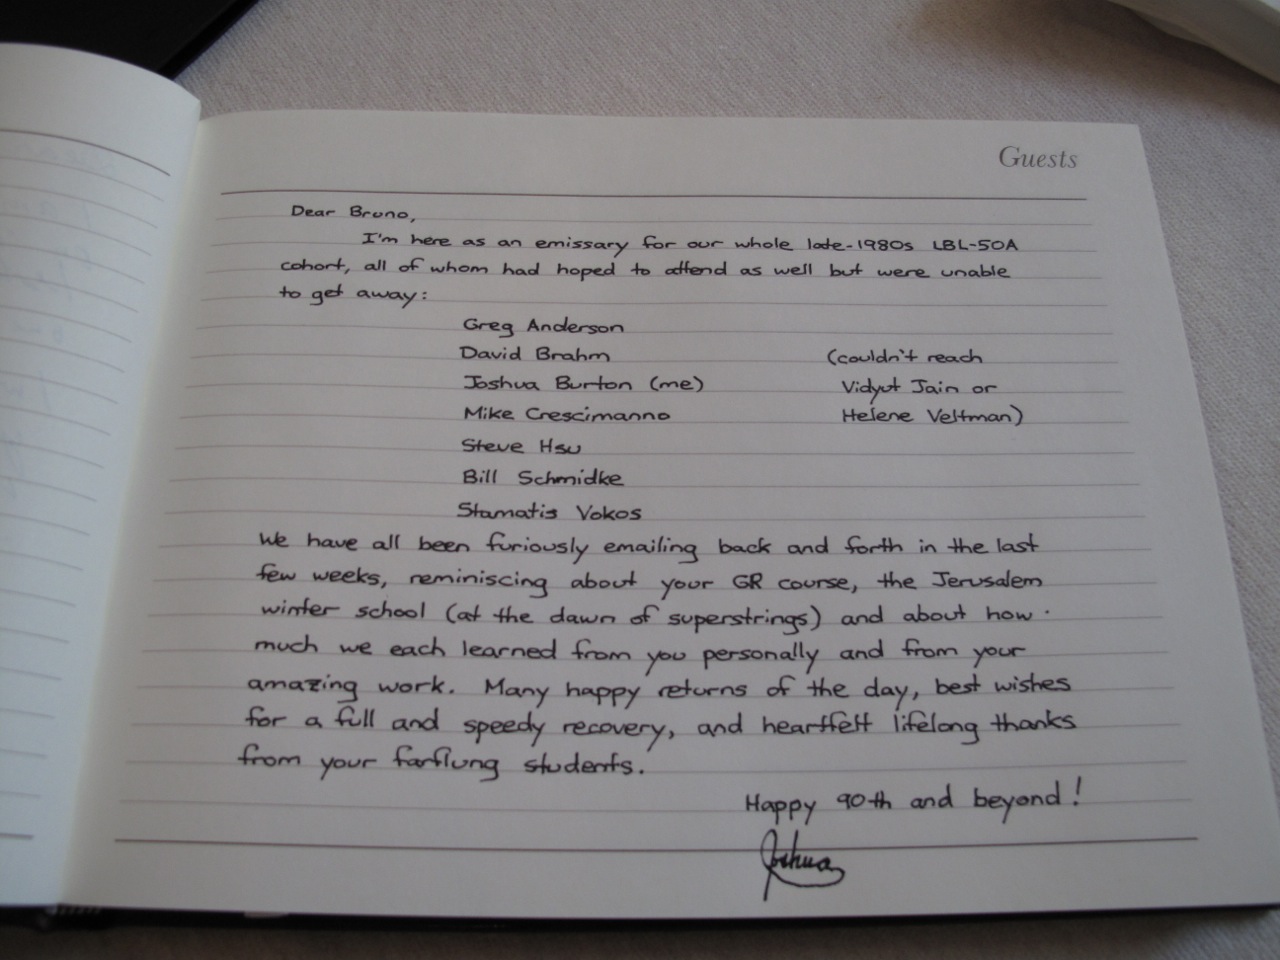 Guests
Dear Bruno,
I'm here as an emissary for our whole late-1980s LBL-50A
cohort, all of whom had hoped to attend as well but were unable
to get away:
Greg Anderson
David Brahm (couldn't reach
Joshua Burton (me) Vidyut Jain or
Mike Crescimanno Helene Veltman)
Steve Hsu
Bill Schmidke
Stamatis Vokos
We have all been furiously emailing back and forth in the last
few weeks, reminiscing about your GR course, the Jerusalem
winter school (at the dawn of superstrings) and about how
much we each learned from you personally and from your
amazing work. Many happy returns of the day, best wishes
for a full and speedy recovery, and heartfelt lifelong thanks
from your farflung students.
Happy 90th and beyond!
Joshua